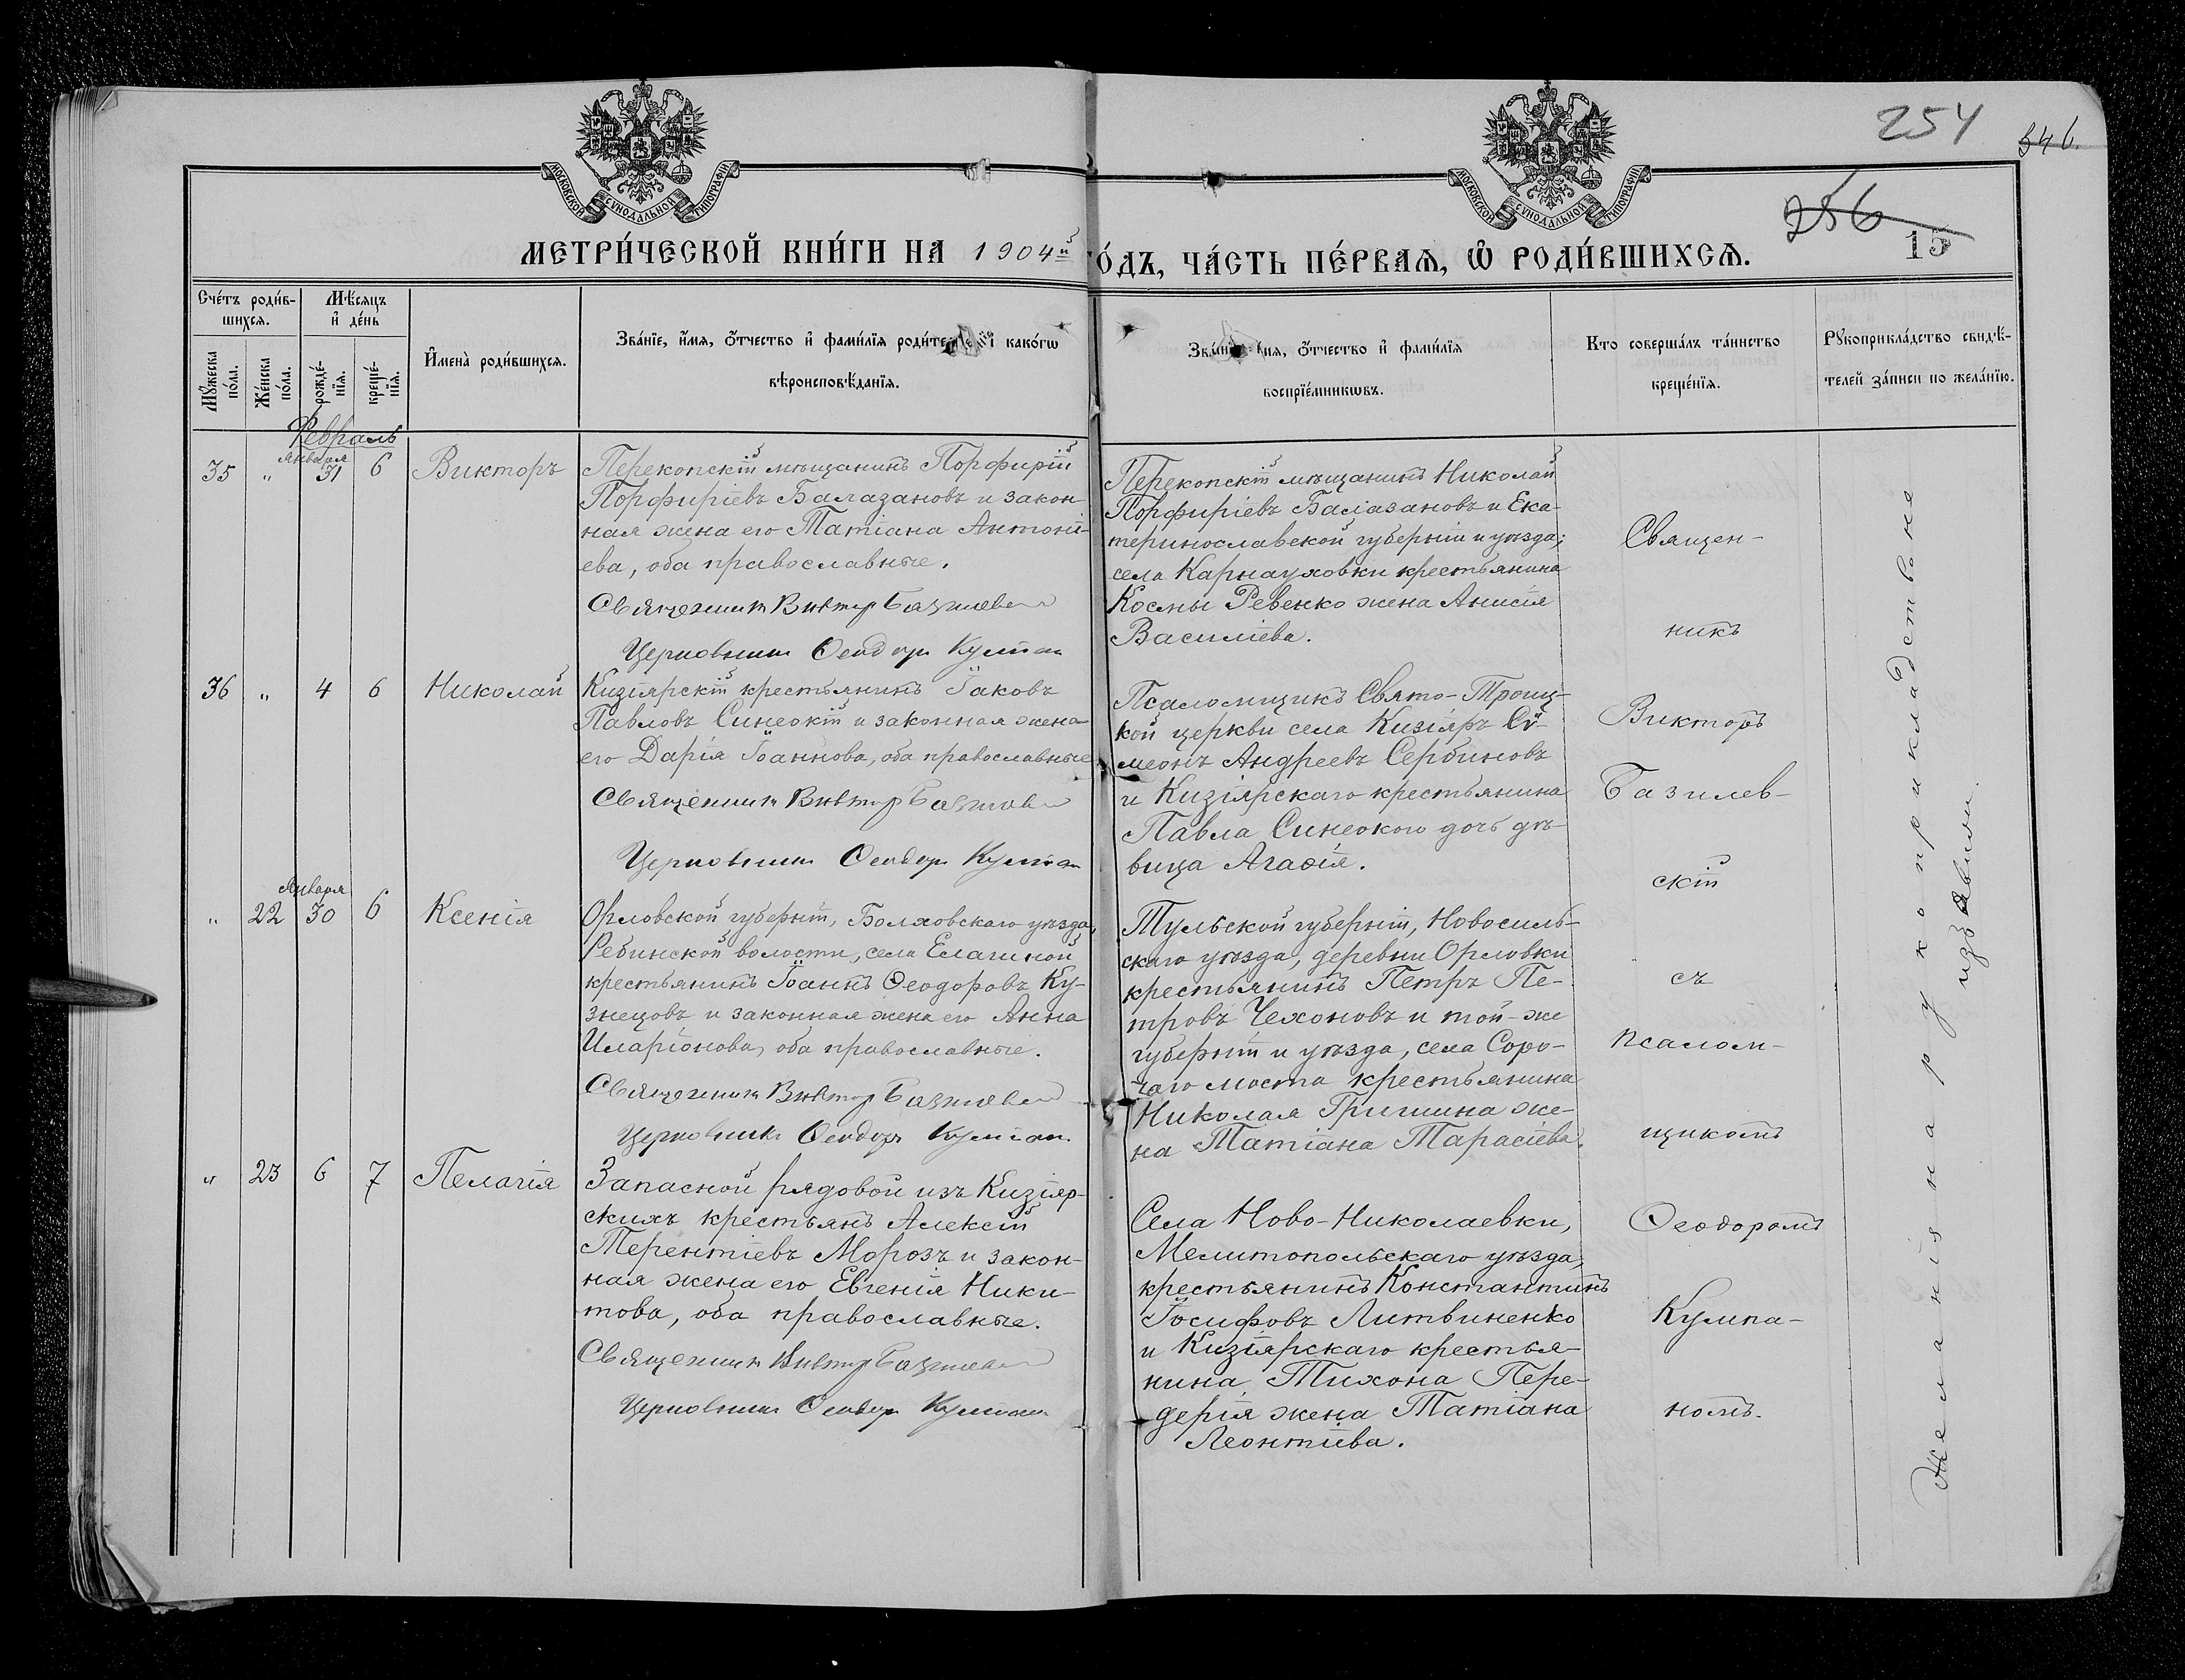 254
346.
256
15
МОСКОВСКОЙ СѴНОДАЛЬНОЙ ТИПОГРАФІИ
МОСКОВСКОЙ СѴНОДАЛЬНОЙ ТИПОГРАФІИ
МЕТРИ́ЧЕСКОЙ КНИ́ГИ НА 1904й ГО́ДЪ, ЧА́СТЬ ПЕ́РВАѦ, Ѡ҆ РОДИ́ВШИХСѦ.
Сче́тъ роди́в-
шихсѧ.
Мѣ́сѧцъ
и҆ де́нь
Мꙋ́жеска по́ла.
Же́нска по́ла.
рожде́-
нїѧ.
креще́-
нїѧ.
И҆мена̀ роди́вшихсѧ.
Зва́нїе, и҆́мѧ, ѻ҆́тчество и҆ фами́лїѧ роди́те како́гѡ
вѣроисповѣ́данїѧ.
ѻ҆́тчество и҆ фами́лїѧ
воспрїе́мникѡвъ.
Кто соверша́лъ та́инство
креще́нїѧ.
Рꙋкоприкла́дство свидѣ́-
телей за́писи по жела́нїю.
Февраль
35 " Января 31 6 Викторъ
Перекопскій мѣщанинъ Порфирій
Порфиріевъ Балазановъ и закон-
ная жена его Татіана Антоні-
ева, оба православные.
Священникъ Викторъ Базилевскій
Церковникъ Ѳеодоръ Кулпан
Перекопскій мѣщанинъ Николай
Порфиріевъ Балазановъ и Ека-
теринославской губерніи и уѣзда,
села Карнауховки крестьянина
Космы Ревенко жена Анисія
Василіева.
36 " 4 6 Николай
Кизіярскій крестьянинъ Іаковъ
Павловъ Синеокій и законная жена
его Дарія Іоаннова, оба православные
Священникъ Викторъ Базилевскій
Церковникъ Ѳеодоръ Кулпан
Псаломщикъ Свято-Троиц-
кой церкви села Кизіяръ Сѵ-
меонъ Андреевъ Сербиновъ
и Кизіярскаго крестьянина
Павла Синеокого дочь дѣ-
вица Агаѳія.
" 22 Января 30 6 Ксенія
Орловской губерніи, Болховскаго уѣзда,
Ребинской волости, села Елагиной
крестьянинъ Іоаннъ Ѳеодоровъ Ку-
знецовъ и законная жена его Анна
Иларіонова, оба православные.
Священникъ Викторъ Базилевскій
Церковникъ Ѳеодоръ Кулпан
Тульской губерніи, Новосиль-
скаго уѣзда, деревни Орловки
крестьянинъ Петръ Пе-
тровъ Чехоновъ и той-же
губерніи и уѣзда, села Соро-
чаго моста крестьянина
Николая Гришина же-
на Татіана Тарасіева.
" 23 6 7 Пелагія
Запасной рядовой изъ Кизіяр-
скихъ крестьянъ Алексій
Терентіевъ Морозъ и закон-
ная жена его Евгенія Ники-
това, оба православные.
Священникъ Викторъ Базилевскій
Церковникъ Ѳеодоръ Кулпан
Села Ново-Николаевки,
Мелитопольскаго уѣзда,
крестьянинъ Константинъ
Іосифовъ Литвиненко
и Кизіярскаго крестья-
нина Тихона Пере-
дерія жена Татіана
Леонтіева.
Священ-
никъ
Викторъ
Базилев-
скій
съ
псалом-
щикомъ
Ѳеодоромъ
Кулпа-
номъ.
Желанія на рукоприкладство не
изъявили.